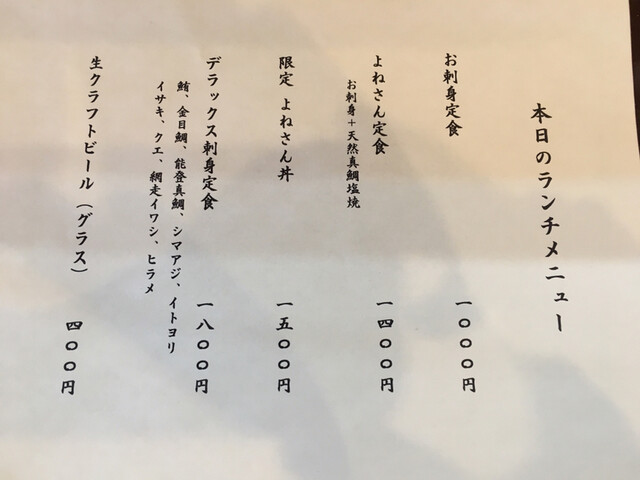 本日のランチメニュー
お刺身定食 一〇〇〇円
よねさん定食 一四〇〇円
お刺身+天然真鯛塩焼
限定 よねさん丼 一五〇〇円
デラックス刺身定食 一八〇〇円
鮪、金目鯛、能登真鯛、シマアジ、イトヨリ
イサキ、クエ、網走イワシ、ヒラメ
生クラフトビール(グラス) 四〇〇円